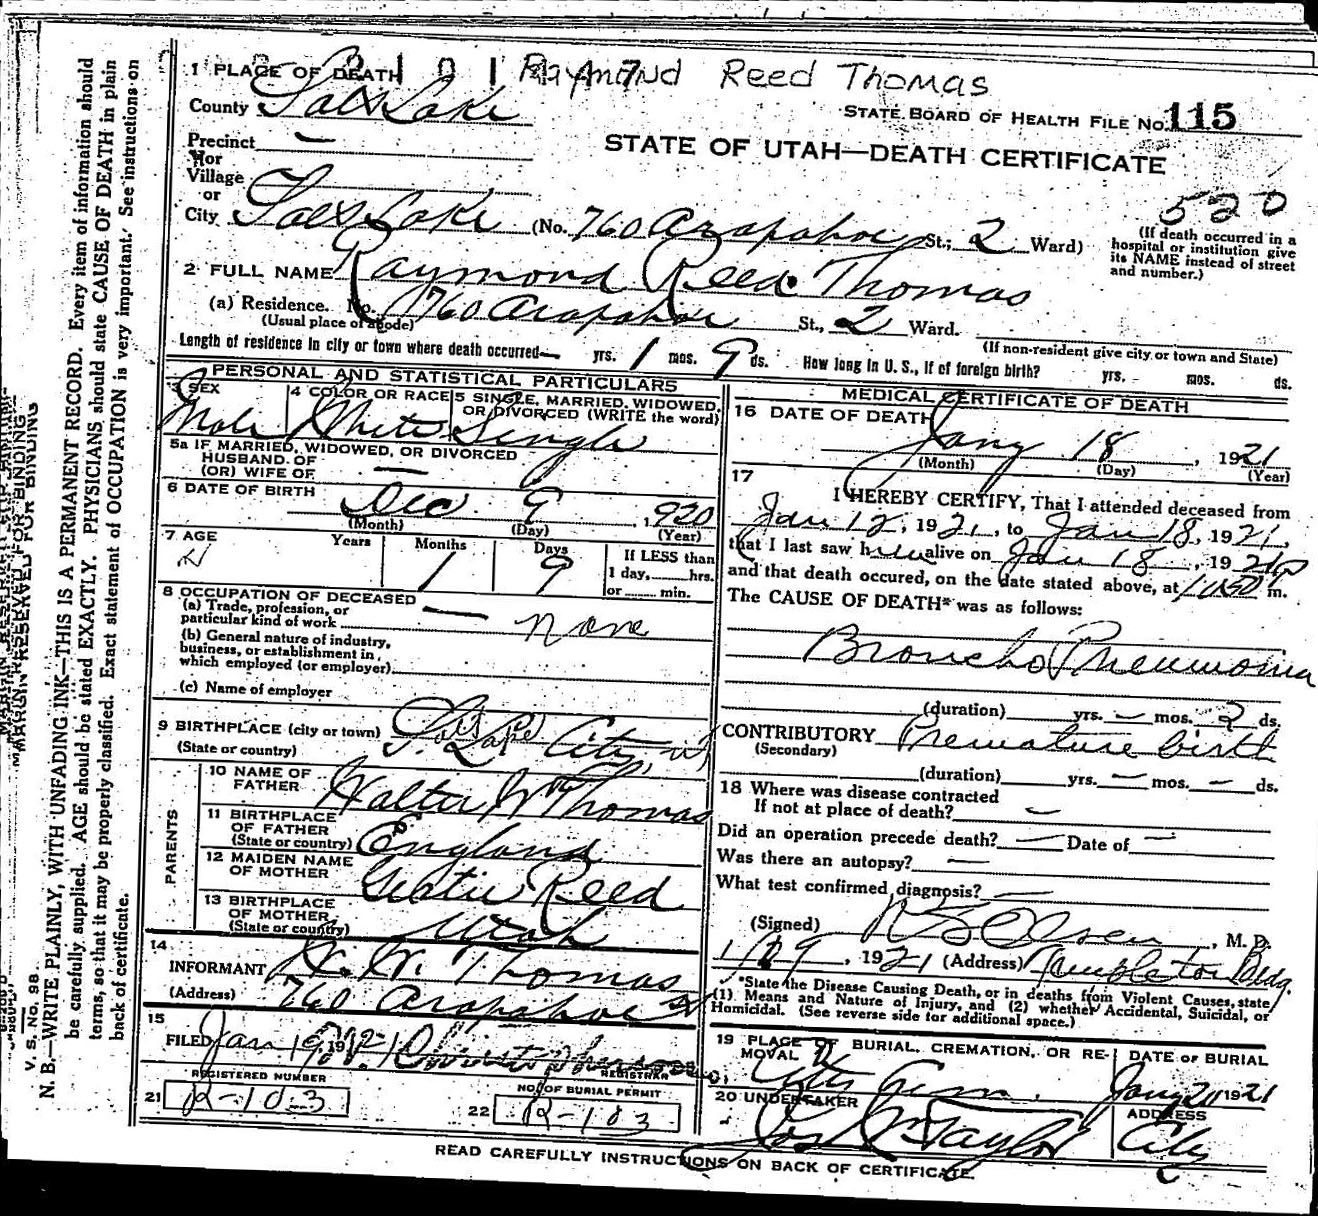 Raymond Reed Thomas
1 PLACE OF DEATH
County Salt Lake
STATE BOARD OF HEALTH FILE No. 115
Precinct —
STATE OF UTAH—DEATH CERTIFICATE
or
Village
or
520
City Salt Lake (No. 760 Arapahoe St.; 2 Ward)
(If death occurred in a hospital or institution give its NAME instead of street and number.)
2 FULL NAME Raymond Reed Thomas
(a) Residence. No. 760 Arapahoe St., 2 Ward.
(Usual place of abode)
(If non-resident give city or town and State)
Length of residence in city or town where death occurred — yrs. 1 mos. 9 ds. How long in U. S., if of foreign birth? yrs. mos. ds.
PERSONAL AND STATISTICAL PARTICULARS
3 SEX
Male
4 COLOR OR RACE
White
5 SINGLE, MARRIED, WIDOWED, OR DIVORCED (WRITE the word)
Single
5a IF MARRIED, WIDOWED, OR DIVORCED
HUSBAND OF
(OR) WIFE OF —
6 DATE OF BIRTH
Dec 9, 1920
(Month) (Day) (Year)
7 AGE Years Months Days If LESS than
1 9 1 day, hrs.
or min.
8 OCCUPATION OF DECEASED
(a) Trade, profession, or
particular kind of work — none
(b) General nature of industry,
business, or establishment in
which employed (or employer)
(c) Name of employer
9 BIRTHPLACE (city or town) Salt Lake City, U
(State or country)
PARENTS
10 NAME OF FATHER Walter W Thomas
11 BIRTHPLACE OF FATHER
(State or country) England
12 MAIDEN NAME OF MOTHER Reed
13 BIRTHPLACE OF MOTHER
(State or country) Utah
14
INFORMANT W. W. Thomas
(Address) 760 Arapahoe St
15
FILED Jan 19, 1921
REGISTRAR
REGISTERED NUMBER
21 R-103
NO. OF BURIAL PERMIT
22 R-103
MEDICAL CERTIFICATE OF DEATH
16 DATE OF DEATH
Jany 18, 1921
(Month) (Day) (Year)
17
I HEREBY CERTIFY, That I attended deceased from
Jan 12, 1921, to Jan 18, 1921,
that I last saw him alive on Jan 18, 1921
and that death occured, on the date stated above, at m.
The CAUSE OF DEATH* was as follows:
Broncho Pneumonia
(duration) yrs. — mos. 2 ds.
CONTRIBUTORY Premature birth
(Secondary)
(duration) yrs. — mos. — ds.
18 Where was disease contracted
If not at place of death? —
Did an operation precede death? — Date of —
Was there an autopsy? —
What test confirmed diagnosis? —
(Signed) Olsen, M. D.
1921 (Address) Templeton Bldg.
*State the Disease Causing Death, or in deaths from Violent Causes, state
(1) Means and Nature of Injury, and (2) whether Accidental, Suicidal, or
Homicidal. (See reverse side for additional space.)
19 PLACE OF BURIAL, CREMATION, OR RE-MOVAL
City Cem.
DATE OF BURIAL
Jany 20 1921
20 UNDERTAKER
Jos Wm Taylor
ADDRESS
City
READ CAREFULLY INSTRUCTIONS ON BACK OF CERTIFICATE.
MARGIN RESERVED FOR BINDING
V. S. No. 88
N. B.—WRITE PLAINLY, WITH UNFADING INK—THIS IS A PERMANENT RECORD. Every item of information should
be carefully supplied. AGE should be stated EXACTLY. PHYSICIANS should state CAUSE OF DEATH in plain
terms, so that it may be properly classified. Exact statement of OCCUPATION is very important. See instructions on
back of certificate.